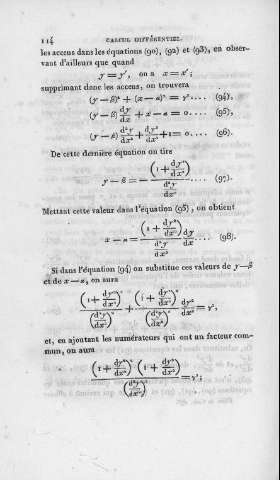 114 CALCUL DIFFÉRENTIEL.
les accens dans les équations (90), (92) et (93), en obser-
vant d'ailleurs que quand
y = y', on a x = x';
supprimant donc les accens, on trouvera
(y − β)² + (x − α)² = γ².... (94),
(y − β) dy/dx + x − α = 0.... (95),
(y − β) d²y/dx² + dy²/dx² + 1 = 0.... (96).
De cette dernière équation on tire
y − β = − (1 + dy²/dx²) / (d²y/dx²) .... (97).
Mettant cette valeur dans l'équation (95), on obtient
x − α = (1 + dy²/dx²) / (d²y/dx²) dy/dx .... (98).
Si dans l'équation (94) on substitue ces valeurs de y − β
et de x − α, on aura
(1 + dy²/dx²)² / (d²y/dx²)² + (1 + dy²/dx²)² / (d²y/dx²)² dy²/dx² = γ²,
et, en ajoutant les numérateurs qui ont un facteur com-
mun, on aura
(1 + dy²/dx²)² (1 + dy²/dx²) / (d²y/dx²)² = γ²;